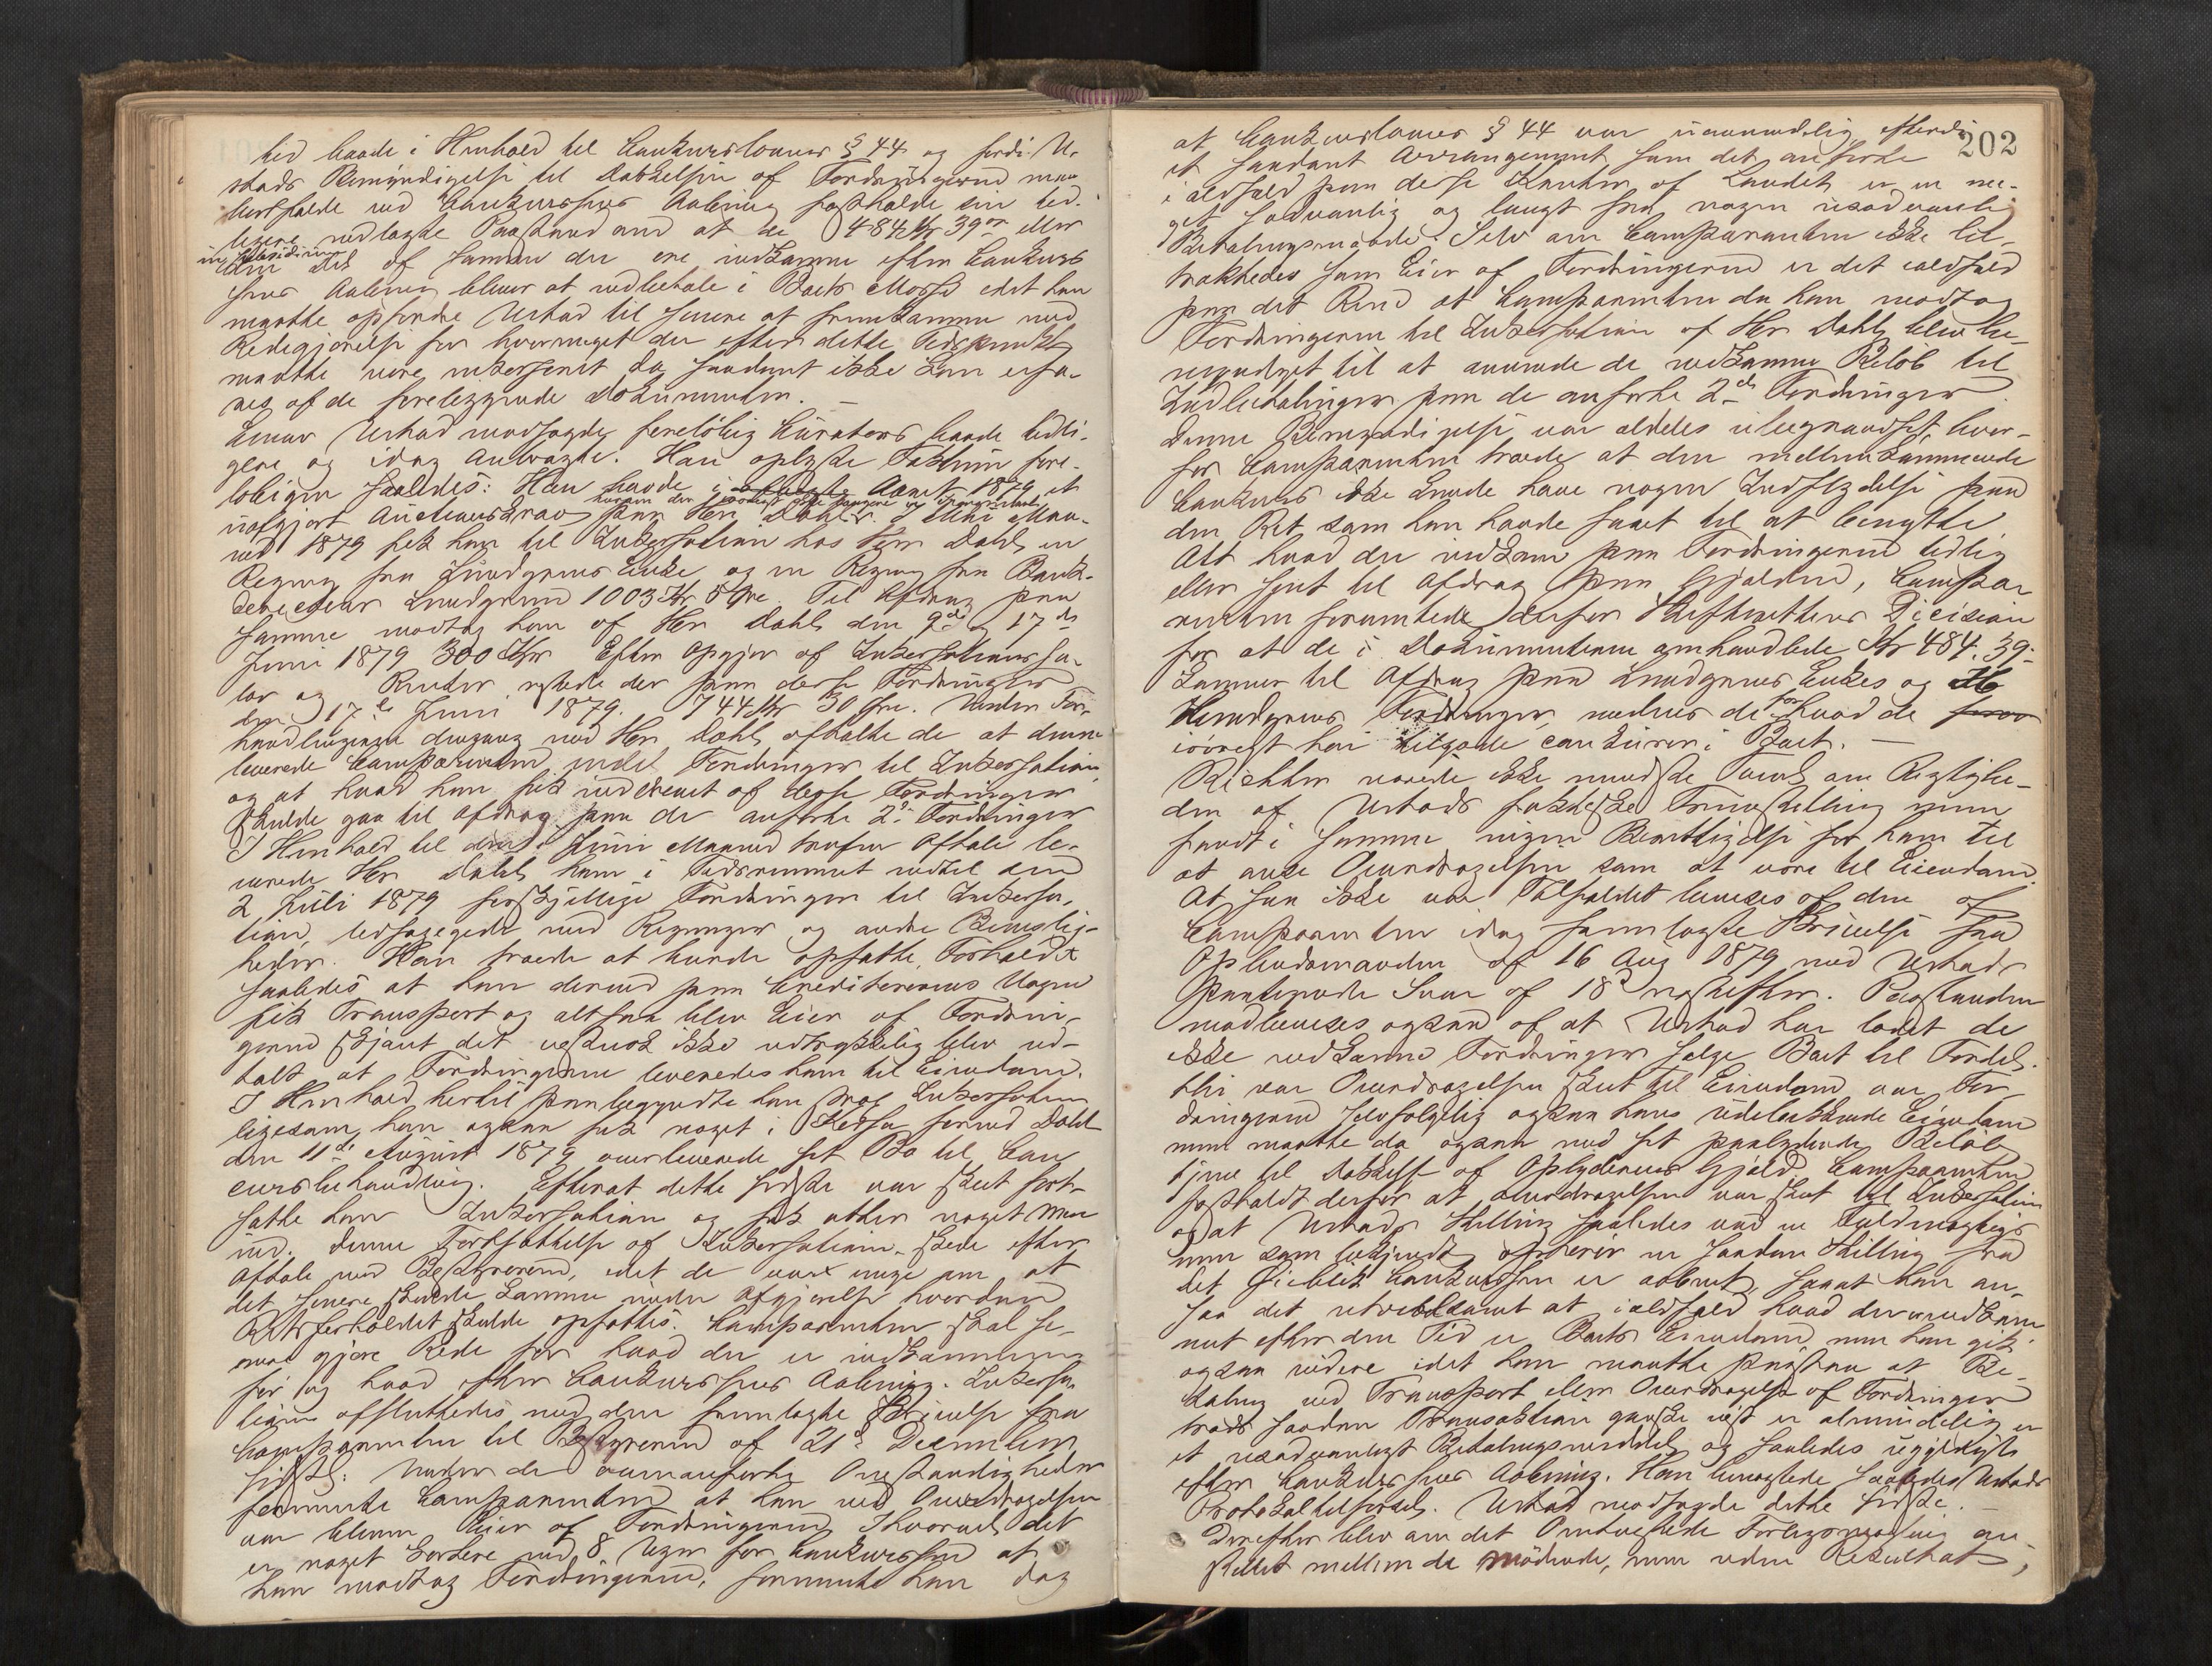 hed baade i Henhold til Concurslovens § 44 og fordi Ur-
stads Bemyndigelse til Indkassation af Fordringerne maa
bortfalde ved Concursens Aabning fastholde sin tid-
ligere nedlagte Paastand om at de 484 Kr 39 Øre eller
in subsidium
den Del af samme der ere indkomne efter Concur-
sens Aabning bliver at indbetale i Boets Masse idet han
maatte opfordre Urstad til senere at fremkomme med
Redegjørelse for hvormeget der efter dette Tidspunkt
maatte være inkasseret da saadant ikke kan erfa-
res af de foreliggende Dokumenter. —
Urstad modsagde foreløbig Curators baade tidli-
gere og idag Anbragte. Han oplyste Faktum fore-
løbigen saaledes: Han havde i Aaret 1879 et
uopgjort Auctionskrav paa Hr. Dahl. I Mai Maa-
ned 1879 fik han til Inkassation hos Herr Dahl en
Regning fra Lundgrens Enke og en Regning fra
Lundgreen 1003 Kr 5 Øre. Til Afdrag paa
samme modtog han af Hr Dahl den 9de og 17de
Juni 1879 300 Kr. Efter Opgjør af Inkassationssa-
lær og Renter restede der paa disse Fordringer
den 17de Juni 1879. 744 Kr 30 Øre. Under For-
handlingerne dengang med Hr Dahl aftalte de at denne
leverede Comparenten endel Fordringer til Inkassation
og at hvad han fik inddrevet af disse Fordringer
skulde gaa til Afdrag paa de anførte 2de Fordringer
I Henhold til den i Juni Maaned trufne Aftale le-
verede Hr Dahl ham i Tidsrummet indtil den
2 Juli 1879 forskjellige Fordringer til Inkassa-
tion, ledsagede med Regninger og andre Bevislig-
heder. Han troede at kunde opfatte Forholdet
saaledes at han derved paa Creditorernes Vegne
fik Transport og altsaa blev Eier af Fordrin-
gerne skjønt det vistnok ikke udtrykkelig blev ud-
talt at Fordringerne leveredes ham til Eiendom.
I Henhold hertil paabegyndte han strax Inkassation
ligesom han ogsaa fik noget i Kassa forend Dahl
den 11te August 1879 overleverede sit Bo til Con-
cursbehandling. Efterat dette sidste var skeet fort-
satte han Inkassation og fik atter noget mer
ind. Denne Fortsættelse af Inkassationen skede efter
Aftale med Bestyreren, idet de vare enige om at
det senere skulde komme under Afgjørelse hvordan
Retsforholdet skulde opfattes. Comparenten skal se-
nere gjøre Rede for hvad der er indkommen
før og hvad efter Concursens Aabning. Inkassa-
tionen afsluttedes med den fremlagte Skrivelse fra
Comparenten til Bestyreren af 21de December
sidstl: Under de ovenanførte Omstændigheder
formente Comparenten at han ved Overdragelsen
var bleven Eier af Fordringerne. Ihvorvel det
er noget kortere end 8 Uger før Concursen at
han modtog Fordringerne, formente han dog
202
at Concurslovens § 44 var uanvendelig efterdi
et saadant Arrangement som det anførte
ialdfald paa disse Kanter af Landet er en me-
get sædvanlig og langt fra nogen usædvanlig
Betalingsmaade. Selv om Comparenten ikke be-
tragtedes som Eier af Fordringerne er det ialdfald
paa det Rene at Comparenten da han modtog
Fordringerne til Inkassation af Hr Dahl blev be-
myndiget til at anvende de indkomne Beløb til
Indbetalinger paa de anførte 2de Fordringer
Denne Bemyndigelse var aldeles ubegrændset, hvor-
for Comparenten troede at den mellemkommende
Concurs ikke kunde have nogen Indflydelse paa
den Ret som han havde faaet til at benytte
Alt hvad der indkom paa Fordringerne tidlig
eller sent til Afdrag paa Gjælden, Compa-
renten formente derfor Skifterettens Decision
for at de i Dokumenterne omhandlede Kr 484. 39.
kommer til Afdrag paa Lundgrens Enkes og
Lundgrens Fordringer, medens de for hvad de
iøvrigt har tilgode concurrerer i Boet. —
Richter nærede ikke mindste Tvivl om Rigtighe-
den af Urstads faktiske Fremstilling men
fandt i samme ingen Berettigelse for ham til
at anse Overdragelsen som at være til Eiendom.
At saa ikke var Tilfældet bevises af den af
Comparenten idag fremlagte Skrivelse fra
Opbudsmanden af 16 Aug 1879 med Urstads
paategnede Svar af 18de næstefter. Paastanden
modbevises ogsaa af at Urstad har ladet de
ikke indkomne Fordringer sælge Boet til Fordel.
thi var Overdragelsen skeet til Eiendom var For-
dringerne selvfølgelig ogsaa hans udelukkende Eiendom
men maatte da ogsaa med sit paalydende Beløb
tjene til Afdrag af Opbyderens Gjæld. Comparenten
fastholdt derfor at Overdragelsen var skeet til Inkassation
og at Urstads Stilling saaledes var en Fuldmægtigs
men som bekjendt ophører en saadan Stilling fra
det Øieblik Concursen er aabnet, saaat han an-
saa det utvivlsomt at ialdfald hvad der er indkom-
met efter den Tid er Boets Eiendom, men han gik
ogsaa videre idet han maatte paastaa at Be-
taling ved Transport eller Overdragelse af Fordringer
trods saadan Transaktion ganske vist er almindelig er
et usædvanligt Betalingsmiddel og saaledes ugyldigt
efter Concursens Aabning. Han benegtede saaledes Urstads
Protokoltilførsel. Urstad modsagde dette sidste.
Derefter blev om det Omtvistede Forligsmægling an-
stillet mellem de Mødende, men uden Resultat,